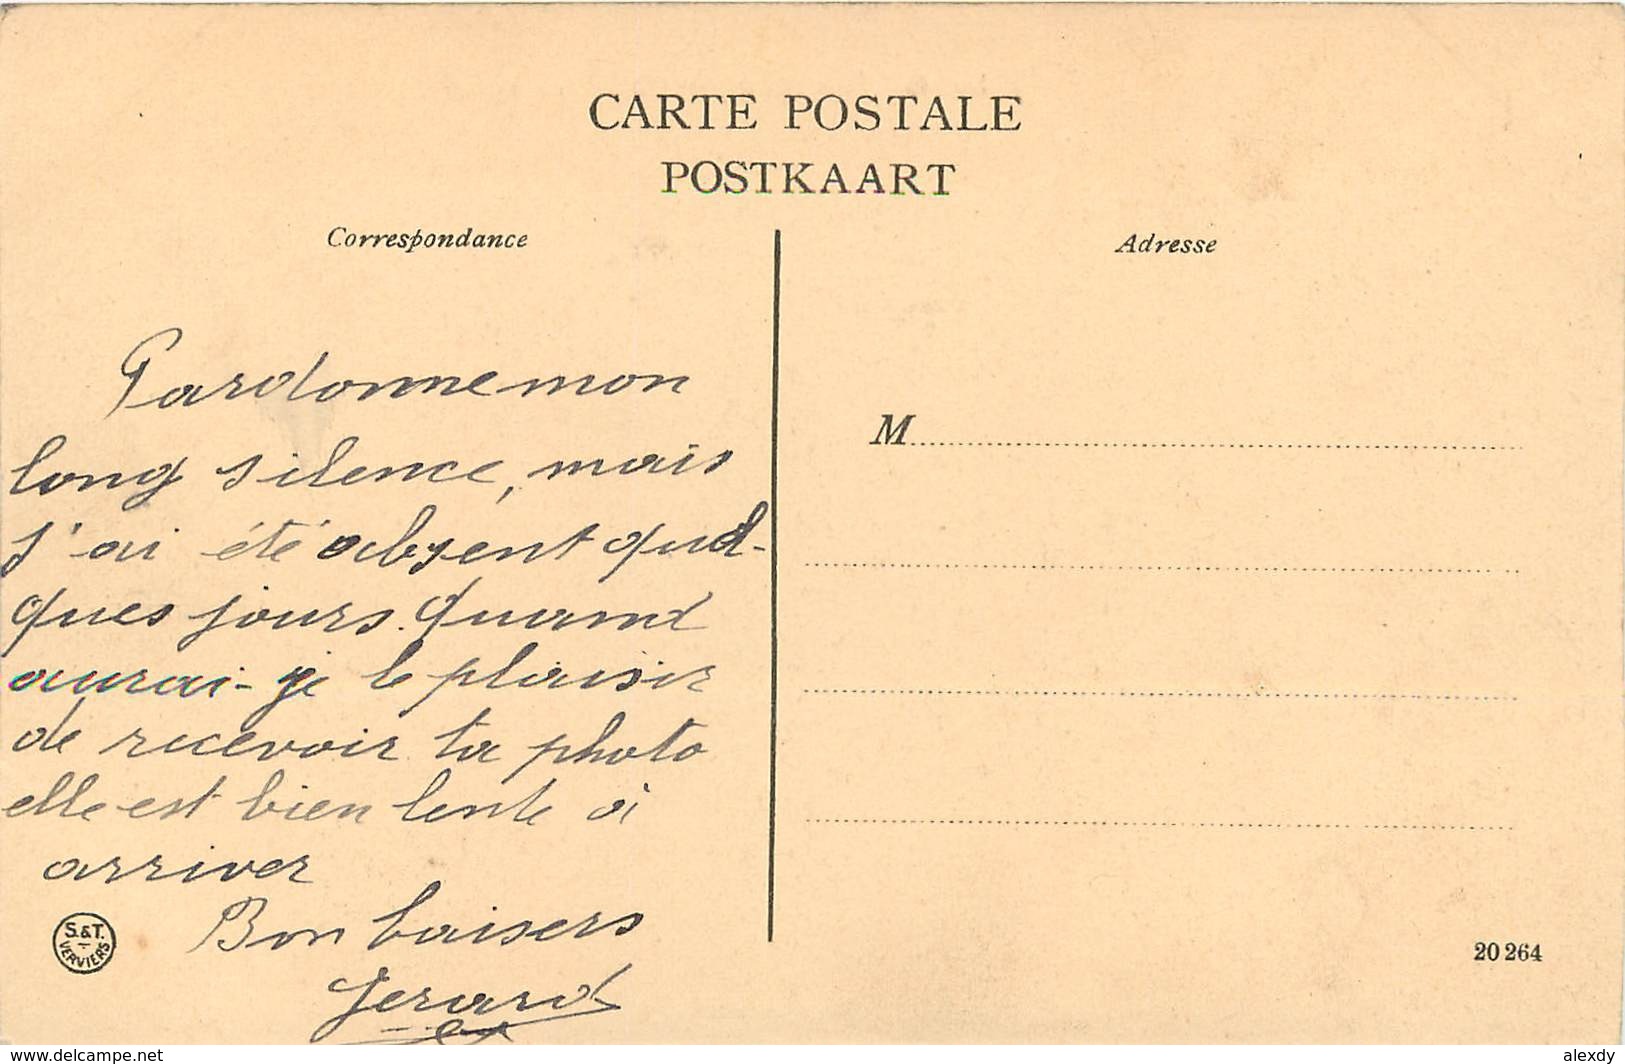 CARTE POSTALE
POSTKAART
Correspondance
Adresse
Pardonne mon
long silence, mais
j'ai été absent quel-
ques jours. Quand
aurai-je le plaisir
de recevoir ta photo
elle est bien lente à
arriver
Bon baisers
Gerard
M
S. & T.
VERVIERS
20 264
www.delcampe.net
alexdy